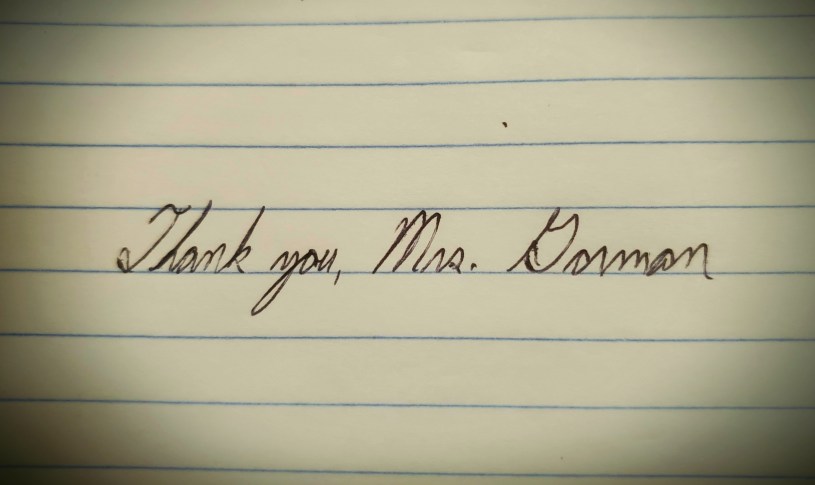 Thank you, Mrs. Gorman